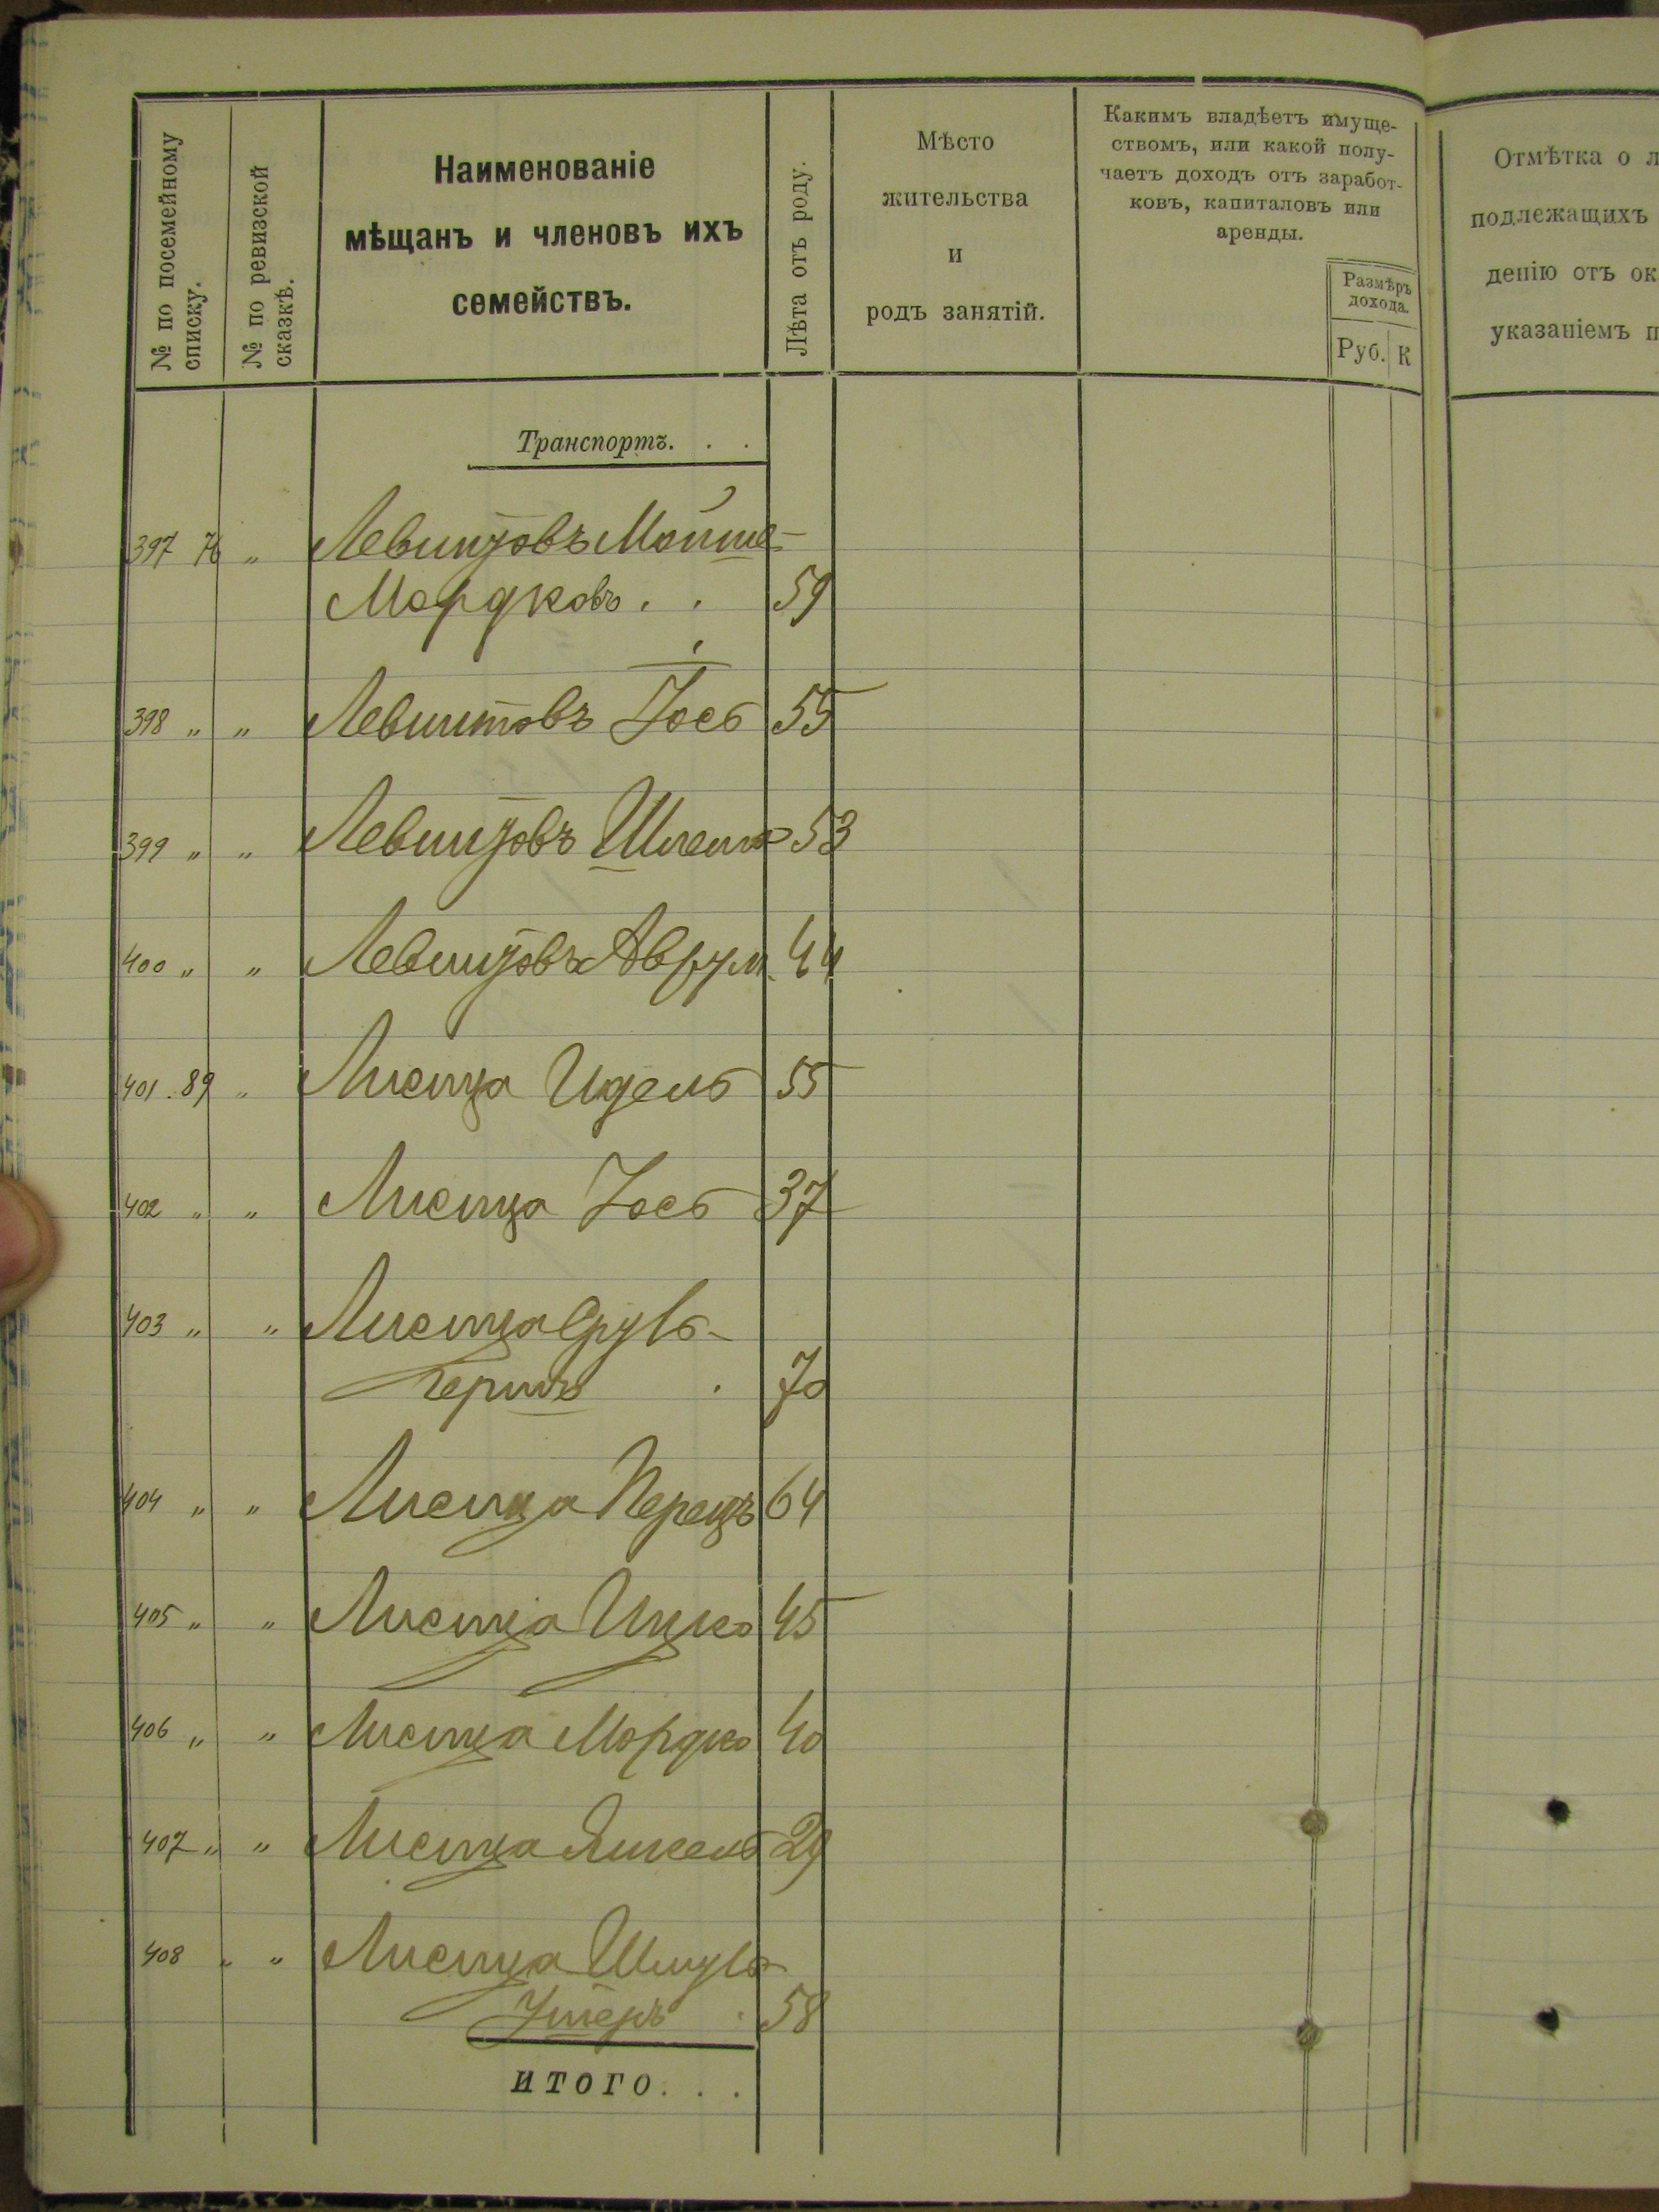 № по посемейному
списку.
№ по ревизской
сказкѣ.
Наименованіе
мѣщанъ и членовъ ихъ
семействъ.
Лѣта отъ роду.
Мѣсто
жительства
и
родъ занятій.
Какимъ владѣетъ имуще-
ствомъ, или какой полу-
чаетъ доходъ отъ заработ-
ковъ, капиталовъ или
аренды.
Размѣръ
дохода.
Руб. К
Отмѣтка о л
подлежащихъ
денію отъ ок
указаніемъ п
Транспортъ. . .
397 76 „ Левинтовъ Мойше-
Мордковъ . . 59
398 „ „ Левинтовъ Іось 55
399 „ „ Левинтовъ Шлема 53
400 „ „ Левинтовъ Аврум 44
401 . 89 „ Лисица Идель 55
402 „ „ Лисица Іось 37
403 „ „ Лисица Сруль-
Гершъ . 70
404 „ „ Лисица Перецъ 64
405 „ „ Лисица Ицко 45
406 „ „ Лисица Мордко 40
407 „ „ Лисица Янкель 29
408 „ „ Лисица Шмуль-
Ушеръ . 58
ИТОГО. . .